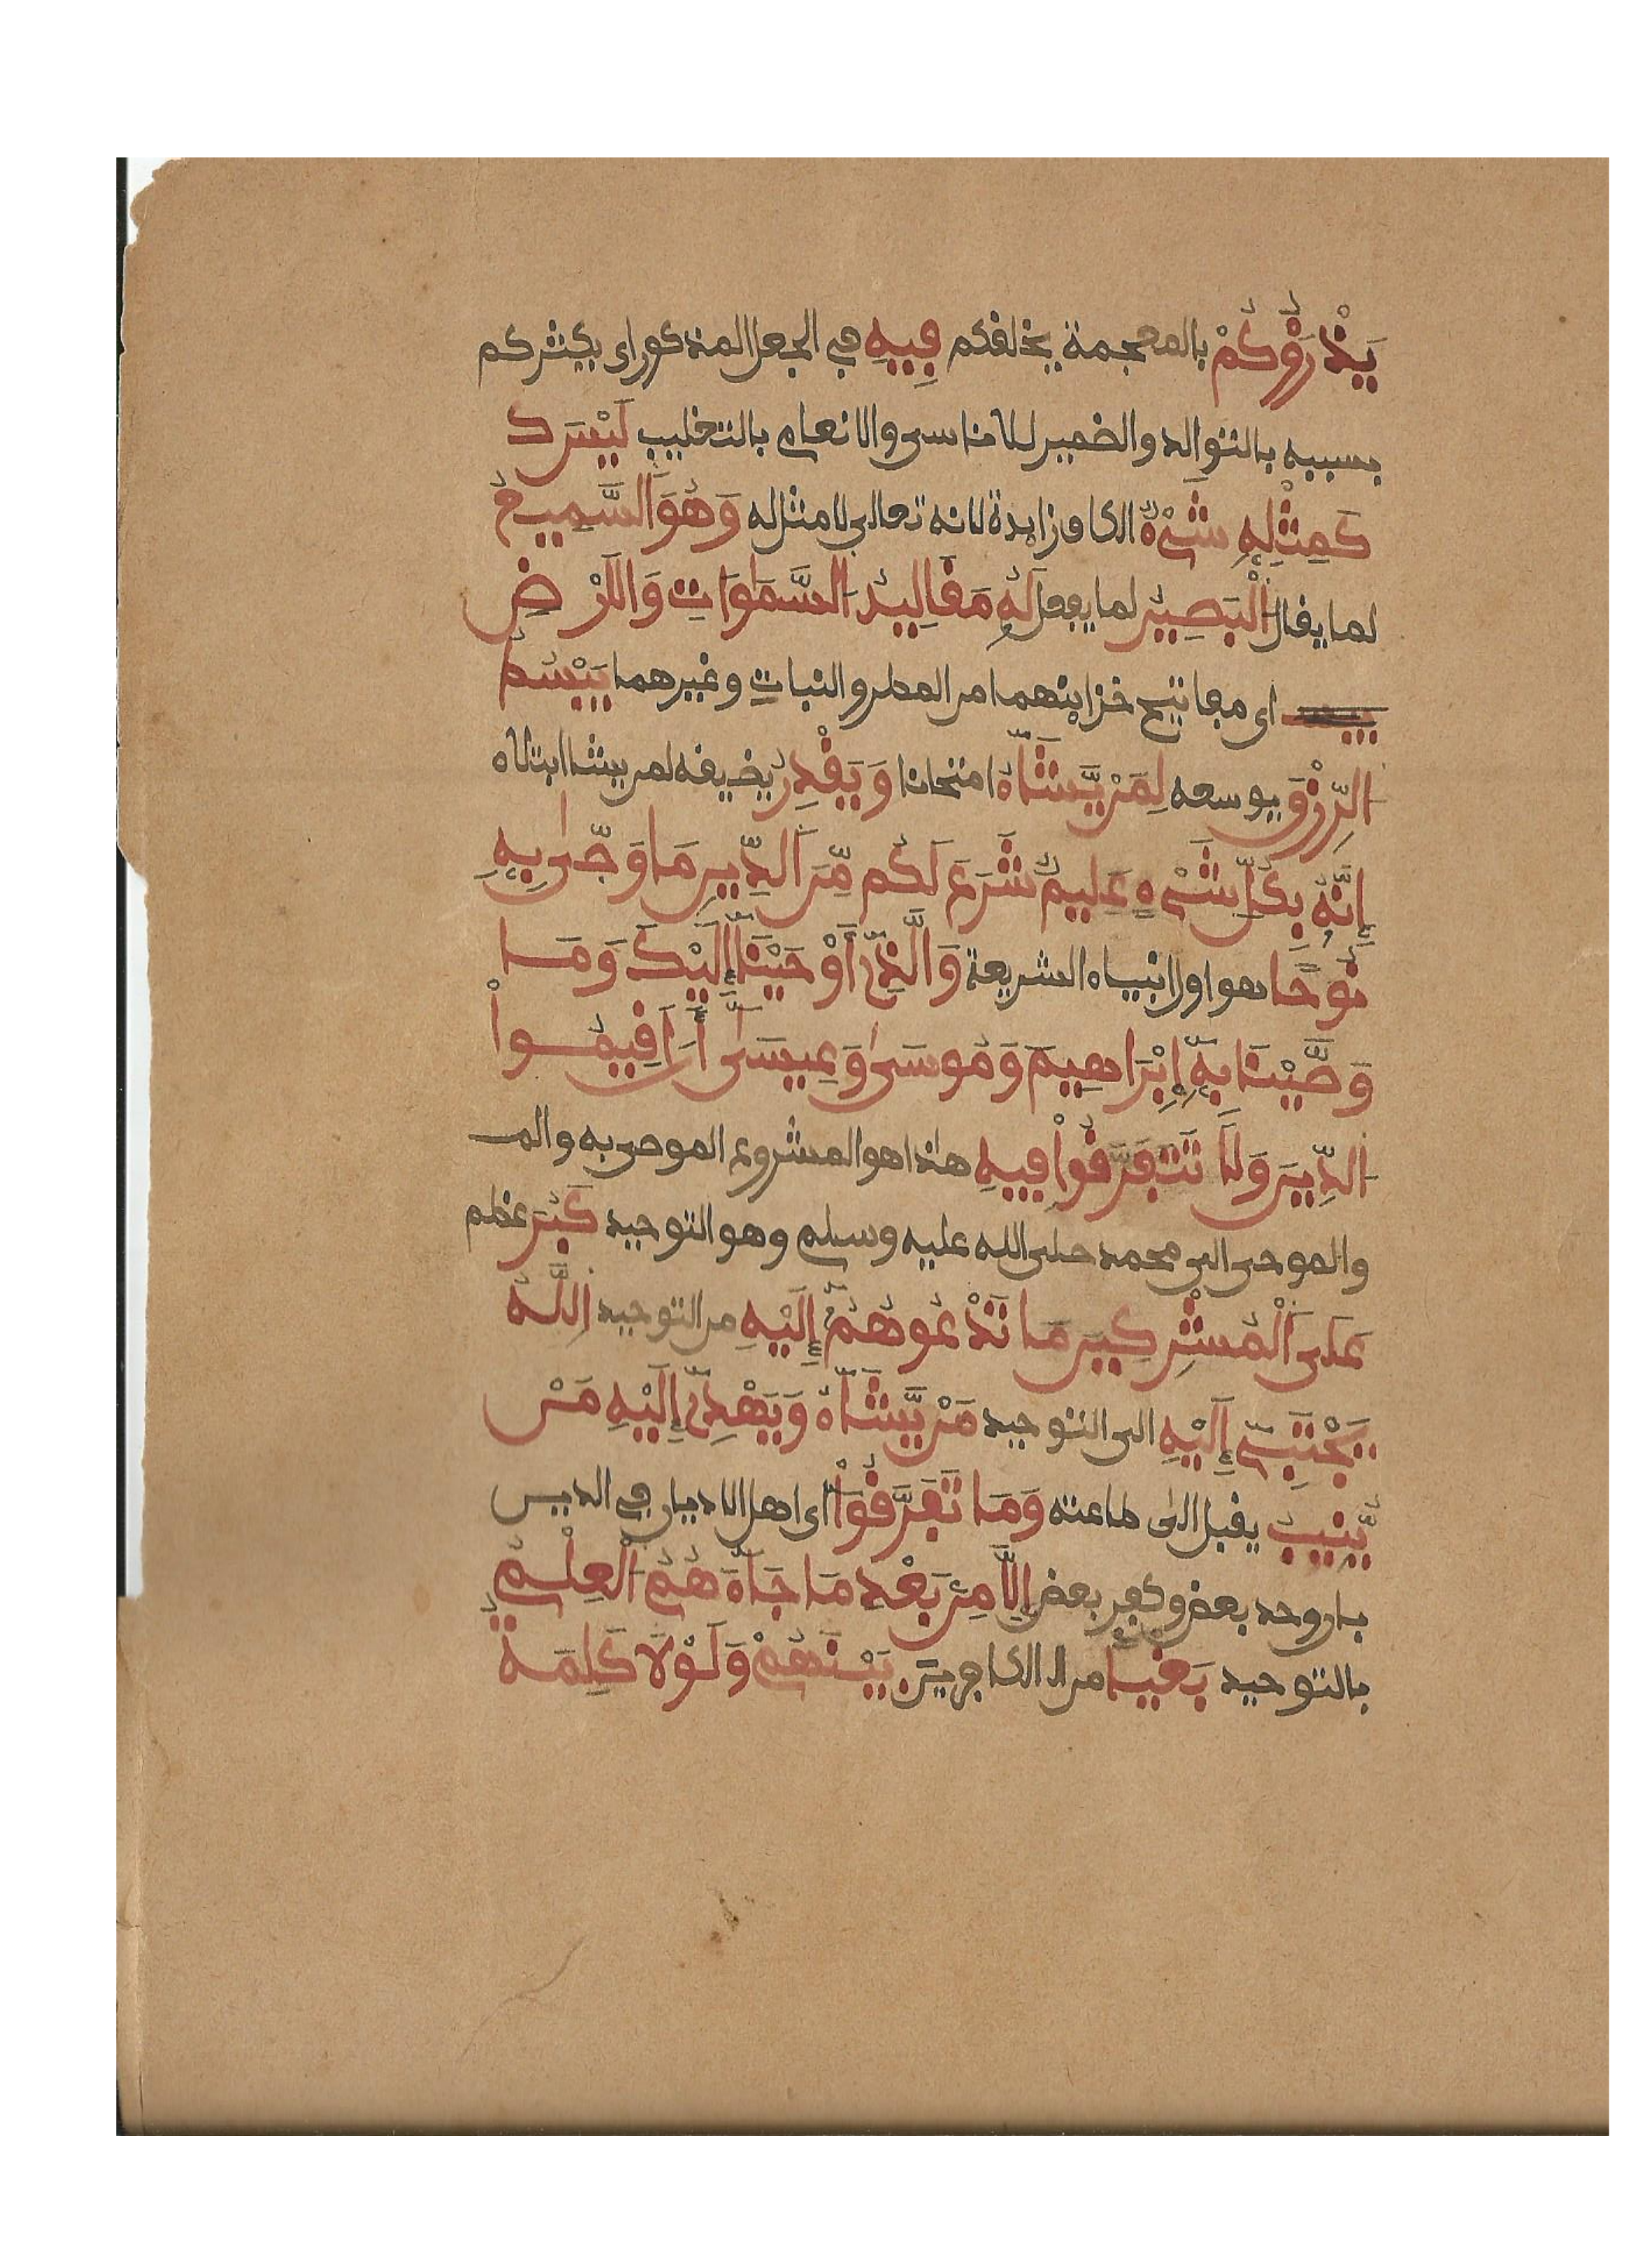 يَذْرَؤُكُمْ بالمعجمة يخلفكم فِيهِ في الجعل المذكور اى يكثركم
بسببه بالتوالد والضمير للاناسى والانعام بالتغليب لَيْسَ كَ
كَمِثْلِهِ شَيْءٌ الكاف زايدة لانه تعالى لا مثل له وَهُوَ اَلسَّمِيعُ
لما يقال اَلْبَصِيرُ لما يفعل لَهُ مَقَالِيدُ اَلسَّمَٰوَاتِ وَالَارْضِ
اى مفاتيح خزاينهما من المطر والنبات وغيرهما يَبْسُطُ
اَلرِّزْقَ يوسعه لِمَنْ يَّشَآءُ امتحانا وَيَقْدِرُ يضيقه لمن يشا ابتلاء
إِنَّهُ بِكُلِّ شَيْءٍ عَلِيمٌ شَرَعَ لَكُم مِّنَ اَلدِّينِ مَا وَصَّىٰ بِهِ
نُوحًا هو اول انبياء الشريعة وَالَّذِي أَوْحَيْنَآ إِلَيْكَ وَمَا
وَصَّيْنَا بِهِ إِبْرَاهِيمَ وَمُوسَىٰ وَعِيسَىٰ أَنَ اَقِيمُواْ
اَلدِّينَ وَلَا تَتَفَرَّقُواْ فِيهِ هٰذا هو المشروع الموصى به والمـ
والموحى الى محمد صلى الله عليه وسلم وهو التوحيد كَبُرَ عظم
عَلَى اَلْمُشْرِكِينَ مَا تَدْعُوهُمُ إِلَيْهِ من التوحيد اِللَّهُ
يَجْتَبِي إِلَيْهِ الى التوحيد مَنْ يَّشَآءُ وَيَهْدِي إِلَيْهِ مَنْ
يُّنِيبُ يقبل الىٰ طاعته وَمَا تَفَرَّقُواْ اى اهل الاديان في الدين
بان وحد بعض وكفر بعض إِلَّا مِنۢ بَعْدِ مَا جَآءَهُمُ اَلْعِلْمُ
بالتوحيد بَغْيًا من الكافرين بَيْنَهُمْ وَلَوْلَا كَلِمَةٌ